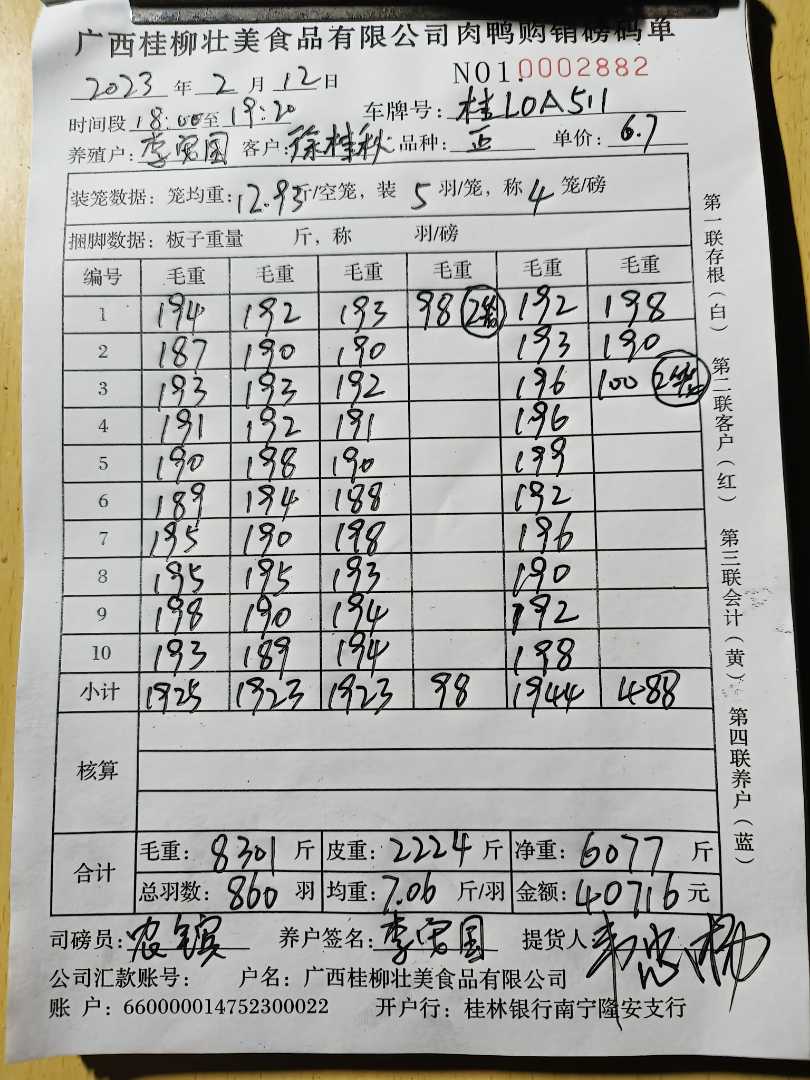 广西桂柳壮美食品有限公司肉鸭购销磅码单
2023 年 2 月 12 日 NO1. 0002882
时间段 18:00 至 19:20 车牌号: 桂L0A511
养殖户: 李 国 客户: 徐桂秋 品种: 正 单价: 6.7
装笼数据: 笼均重: 12.93 斤/空笼, 装 5 羽/笼, 称 4 笼/磅
捆脚数据: 板子重量 斤, 称 羽/磅
编号 毛重 毛重 毛重 毛重 毛重 毛重
1 194 192 193 98 2笼 192 198
2 187 190 190 193 190
3 193 193 192 196 100 2笼
4 191 192 191 196
5 190 198 190 199
6 189 194 188 192
7 195 190 198 196
8 195 195 193 190
9 198 190 194 192
10 193 189 194 198
小计 1925 1923 1923 98 1944 488
核算
合计 毛重: 8301 斤 皮重: 2224 斤 净重: 6077 斤
总羽数: 860 羽 均重: 7.06 斤/羽 金额: 40716 元
司磅员: 农 宾 养户签名: 李 国 提货人
公司汇款账号: 户名: 广西桂柳壮美食品有限公司
账 户: 660000014752300022 开户行: 桂林银行南宁隆安支行
第一联存根(白) 第二联客户(红) 第三联会计(黄) 第四联养户(蓝)